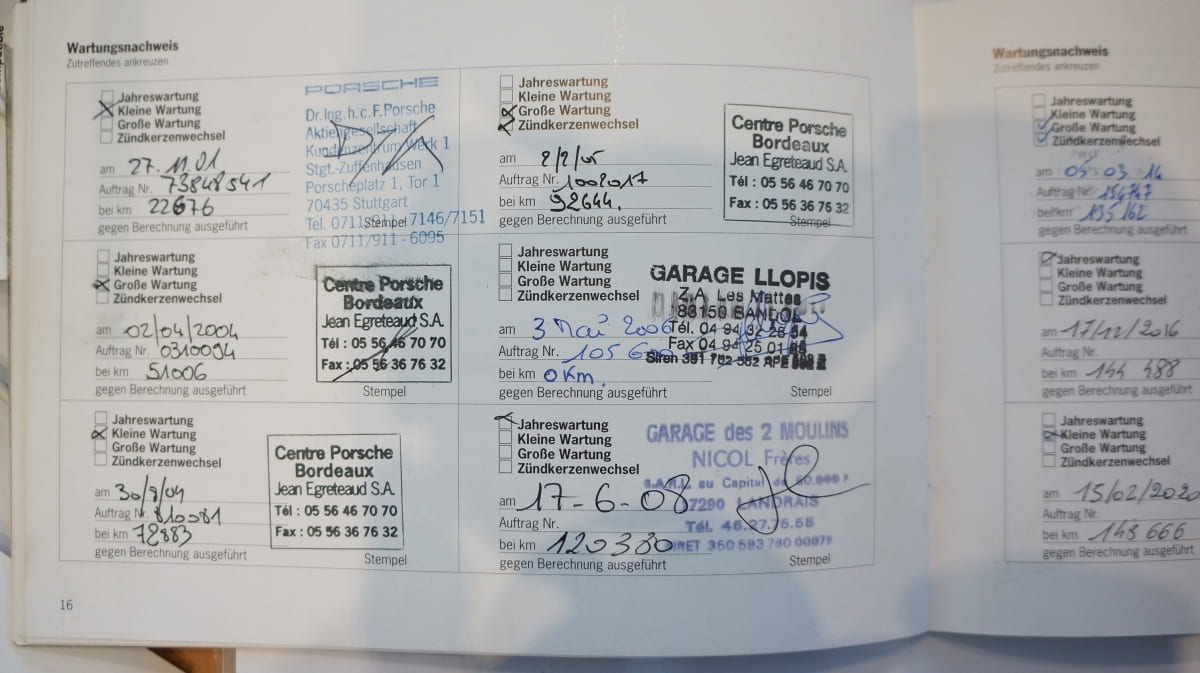 Wartungsnachweis
Zutreffendes ankreuzen
Jahreswartung
Kleine Wartung
Große Wartung
Zündkerzenwechsel
am 27.11.01
Auftrag Nr. 73848541
bei km 22676
gegen Berechnung ausgeführt
PORSCHE
Dr. Ing. h.c. F. Porsche
Aktiengesellschaft
Kundenzentrum Werk 1
Stgt.-Zuffenhausen
Porscheplatz 1, Tor 1
70435 Stuttgart
Tel. 0711/911-7146/7151
Stempel
Fax 0711/911-6095
Jahreswartung
Kleine Wartung
Große Wartung
Zündkerzenwechsel
am 02/04/2004
Auftrag Nr. 0310094
bei km 51006
gegen Berechnung ausgeführt
Centre Porsche
Bordeaux
Jean Egreteaud S.A.
Tél : 05 56 46 70 70
Fax : 05 56 36 76 32
Stempel
Jahreswartung
Kleine Wartung
Große Wartung
Zündkerzenwechsel
am 30/9/04
Auftrag Nr. 810081
bei km 72883
gegen Berechnung ausgeführt
Centre Porsche
Bordeaux
Jean Egreteaud S.A.
Tél : 05 56 46 70 70
Fax : 05 56 36 76 32
Stempel
16
Jahreswartung
Kleine Wartung
Große Wartung
Zündkerzenwechsel
am 2/2/05
Auftrag Nr. 1002017
bei km 92644.
gegen Berechnung ausgeführt
Centre Porsche
Bordeaux
Jean Egreteaud S.A.
Tél : 05 56 46 70 70
Fax : 05 56 36 76 32
Stempel
Jahreswartung
Kleine Wartung
Große Wartung
Zündkerzenwechsel
am 3 Mai 2006
Auftrag Nr. 105 600
bei km 0 Km.
gegen Berechnung ausgeführt
GARAGE LLOPIS
Z.A. Les Mattes
83150 BANDOL
Tél. 04 94 32 28 54
Fax 04 94 25 01
Siren 381 752 352 APE
Stempel
Jahreswartung
Kleine Wartung
Große Wartung
Zündkerzenwechsel
am 17-6-08
Auftrag Nr.
bei km 120330
gegen Berechnung ausgeführt
GARAGE des 2 MOULINS
NICOL Frères
S.A.R.L. au Capital de 50.000 F
17290 LANDRAIS
Tél. 46.27.75.58
SIRET 350 593 760 00079
Stempel
Wartungsnachweis
Zutreffendes ankreuzen
Jahreswartung
Kleine Wartung
Große Wartung
Zündkerzenwechsel
am 05.03.14
Auftrag Nr. 154747
bei km 135162
gegen Berechnung ausgeführt
Jahreswartung
Kleine Wartung
Große Wartung
Zündkerzenwechsel
am 17/12/2016
Auftrag Nr.
bei km 144 488
gegen Berechnung ausgeführt
Jahreswartung
Kleine Wartung
Große Wartung
Zündkerzenwechsel
am 15/02/2020
Auftrag Nr.
bei km 148 666
gegen Berechnung ausgeführt